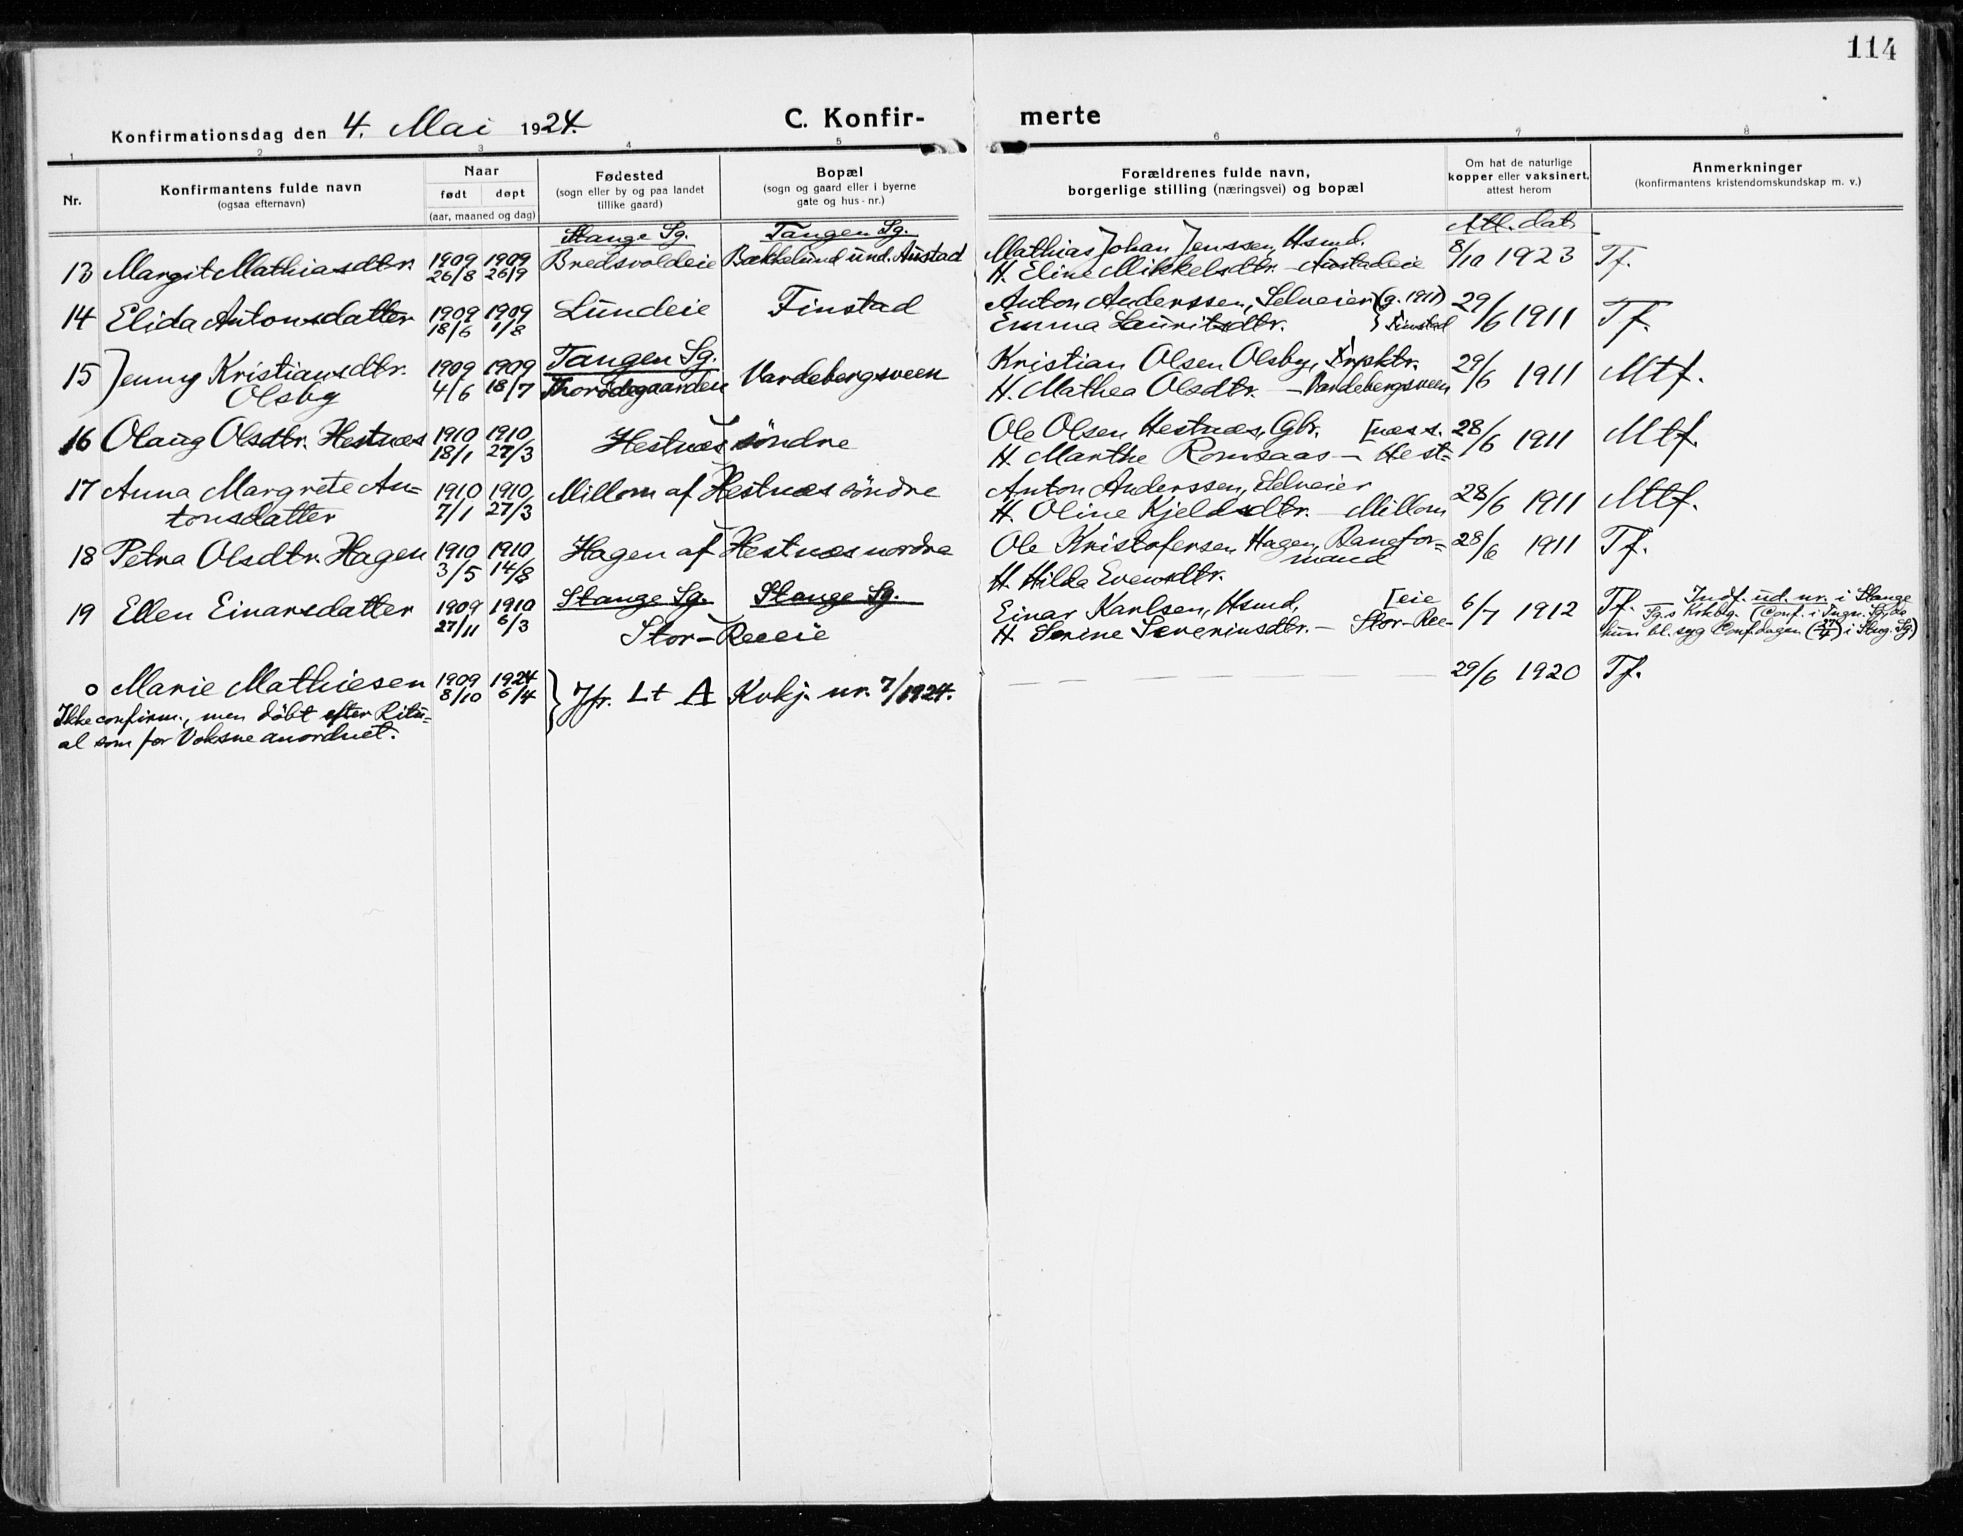 114
Konfirmationsdag den 4. Mai 1924.
C. Konfir- merte
1 2 3 4 5 6 7 8
Nr.
Konfirmantens fulde navn
(ogsaa efternavn)
Naar
født døpt
(aar, maaned og dag)
Fødested
(sogn eller by og paa landet
tillike gaard)
Bopæl
(sogn og gaard eller i byerne
gate og hus-nr.)
Forældrenes fulde navn,
borgerlige stilling (næringsvei) og bopæl
Om hat de naturlige
kopper eller vaksinert.
attest herom
Anmerkninger
(konfirmantens kristendomskundskap m. v.)
Stange Sg. Tangen Sg. Att. dat.
13 Margit Mathiasdtr. 1909 1909 Bredsvoldeie Bækkelund und. Austad Mathias Johan Jenssen, Hsmd. 8/10 1923 Tf.
26/8 26/9 H. Eline Mikkelsdtr. - Austadeie
14 Elida Antonsdatter 1909 1909 Lundeie Finstad Anton Anderssen, Selveier (g. 1911) 29/6 1911 Tf.
18/6 1/8 Emma Lauritsdtr. } Finstad
Tangen Sg.
15 Jenny Kristiansdtr. 1909 1909 Vardebergsveen Kristian Olsen Olsby, 29/6 1911 Mtf.
Olsby 4/6 18/7 H. Mathea Olsdtr. - Vardebergsveen
16 Olaug Olsdtr. Hestnæs 1910 1910 Hestnæs söndre Ole Olsen Hestnæs, Gbr. [næs s. 28/6 1911 Mtf.
18/1 27/3 H. Marthe Romsaas - Hest=
17 Anna Margrete An= 1910 1910 Millom af Hestnæs söndre Anton Anderssen, Selveier 28/6 1911 Mtf.
tonsdatter 7/1 27/3 H. Oline Kjeldsdtr. - Millom
18 Petra Olsdtr. Hagen 1910 1910 Hagen af Hestnæs nordre Ole Kristofersen Hagen, Banefor= 28/6 1911 Tf.
3/5 14/8 mand
H. Hilda Evensdtr.
Stange Sg. Stange Sg.
19 Ellen Einarsdatter 1909 1910 Stor-Reeeie Einar Karlsen, Hsmd, [eie 6/7 1912 Tf. - Indf. ud. nr. i Stange
27/11 6/3 H. Serine Severinsdtr. - Stor-Ree- Sg.s Krkbog. (Conf. i Tngn. Sg, da
hun bl. syg Confdagen (27/4) i Stng. Sg.)
o Marie Mathiesen 1909 1924 } Jfr. Lt A Kvkj. nr. 7/1924. — — — 29/6 1920 Tf.
8/10 6/4
Ikke confirm., men döbt efter Ritu=
al som for Voksne anordnet.